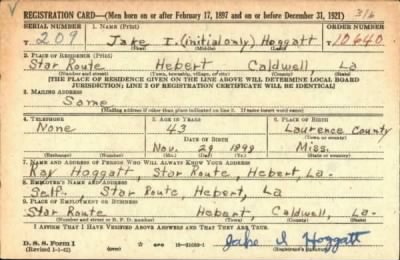 REGISTRATION CARD—(Men born on or after February 17, 1897 and on or before December 31, 1921) 316
SERIAL NUMBER 1. NAME (Print) ORDER NUMBER
T 209 Jake I. (initial only) Hoggatt T 10640
2. PLACE OF RESIDENCE (Print)
Star Route Hebert Caldwell, La
(Number and street) (Town, township, village, or city) (County) (State)
[THE PLACE OF RESIDENCE GIVEN ON THE LINE ABOVE WILL DETERMINE LOCAL BOARD
JURISDICTION; LINE 2 OF REGISTRATION CERTIFICATE WILL BE IDENTICAL]
3. MAILING ADDRESS
Same
[Mailing address if other than place indicated on line 2. If same insert word same]
4. TELEPHONE 5. AGE IN YEARS 6. PLACE OF BIRTH
None 43 Laurence County
DATE OF BIRTH (Town or county)
Nov. 29 1898 Miss.
(Exchange) (Number) (Mo.) (Day) (Yr.) (State or country)
7. NAME AND ADDRESS OF PERSON WHO WILL ALWAYS KNOW YOUR ADDRESS
Ray Hoggatt, Star Route, Hebert, La.
8. EMPLOYER'S NAME AND ADDRESS
Self. Star Route, Hebert, La
9. PLACE OF EMPLOYMENT OR BUSINESS
Star Route Hebert, Caldwell, La.
(Number and street or R. F. D. number) (Town) (County) (State)
I AFFIRM THAT I HAVE VERIFIED ABOVE ANSWERS AND THAT THEY ARE TRUE.
D. S. S. Form 1
(Revised 1-1-42) (over)
Jake I Hoggatt